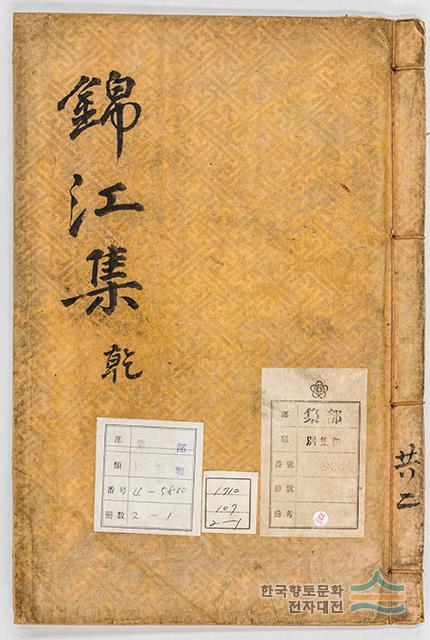 錦江集
乾
共二
部 集部
類 別集類
番号 4-5800
冊数 2-1
1710
107
2-1
部 集部
類 別集類
番號
冊數
備考
한국향토문화
전자대전